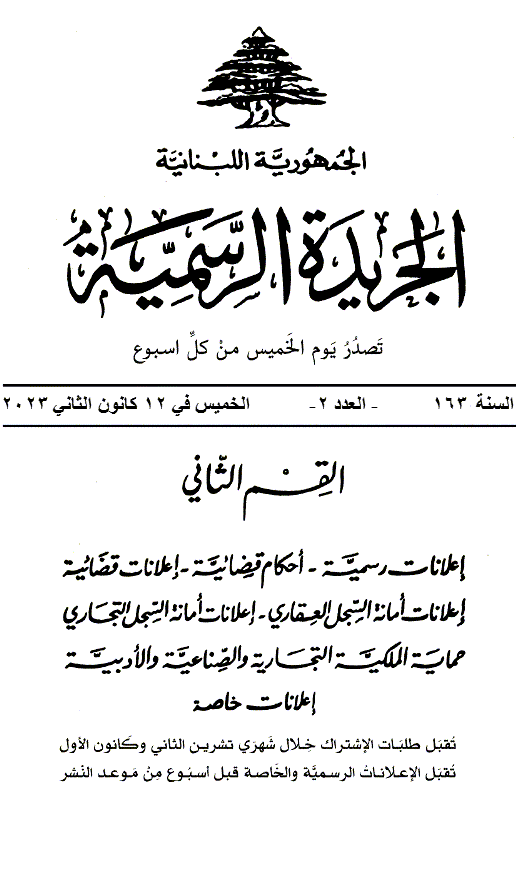 الجمهورية اللبنانية
الجريدة الرسمية
تَصدُرُ يَوم الخَميس منْ كلِّ اسبوع
السنة ١٦٣ - العدد ٢- الخميس في ١٢ كانون الثاني ٢٠٢٣
القِسْم الثّاني
إعلانات رسميَّة - أحكام قضائيَّة - إعلانات قضائية
إعلانات أمانة السِّجل العِقاري - إعلانات أمانة السِّجل التجاري
حماية الملكيَّة التجارية والصِّناعيَّة والأدبيَّة
إعلانات خاصة
تُقبَل طلبَات الإشتراك خِلال شَهرَي تشرين الثاني وكَانون الأول
تُقبَل الإعلانات الرسميَّة والخَاصة قبل أسبُوع مِنْ مَوعد النَشر